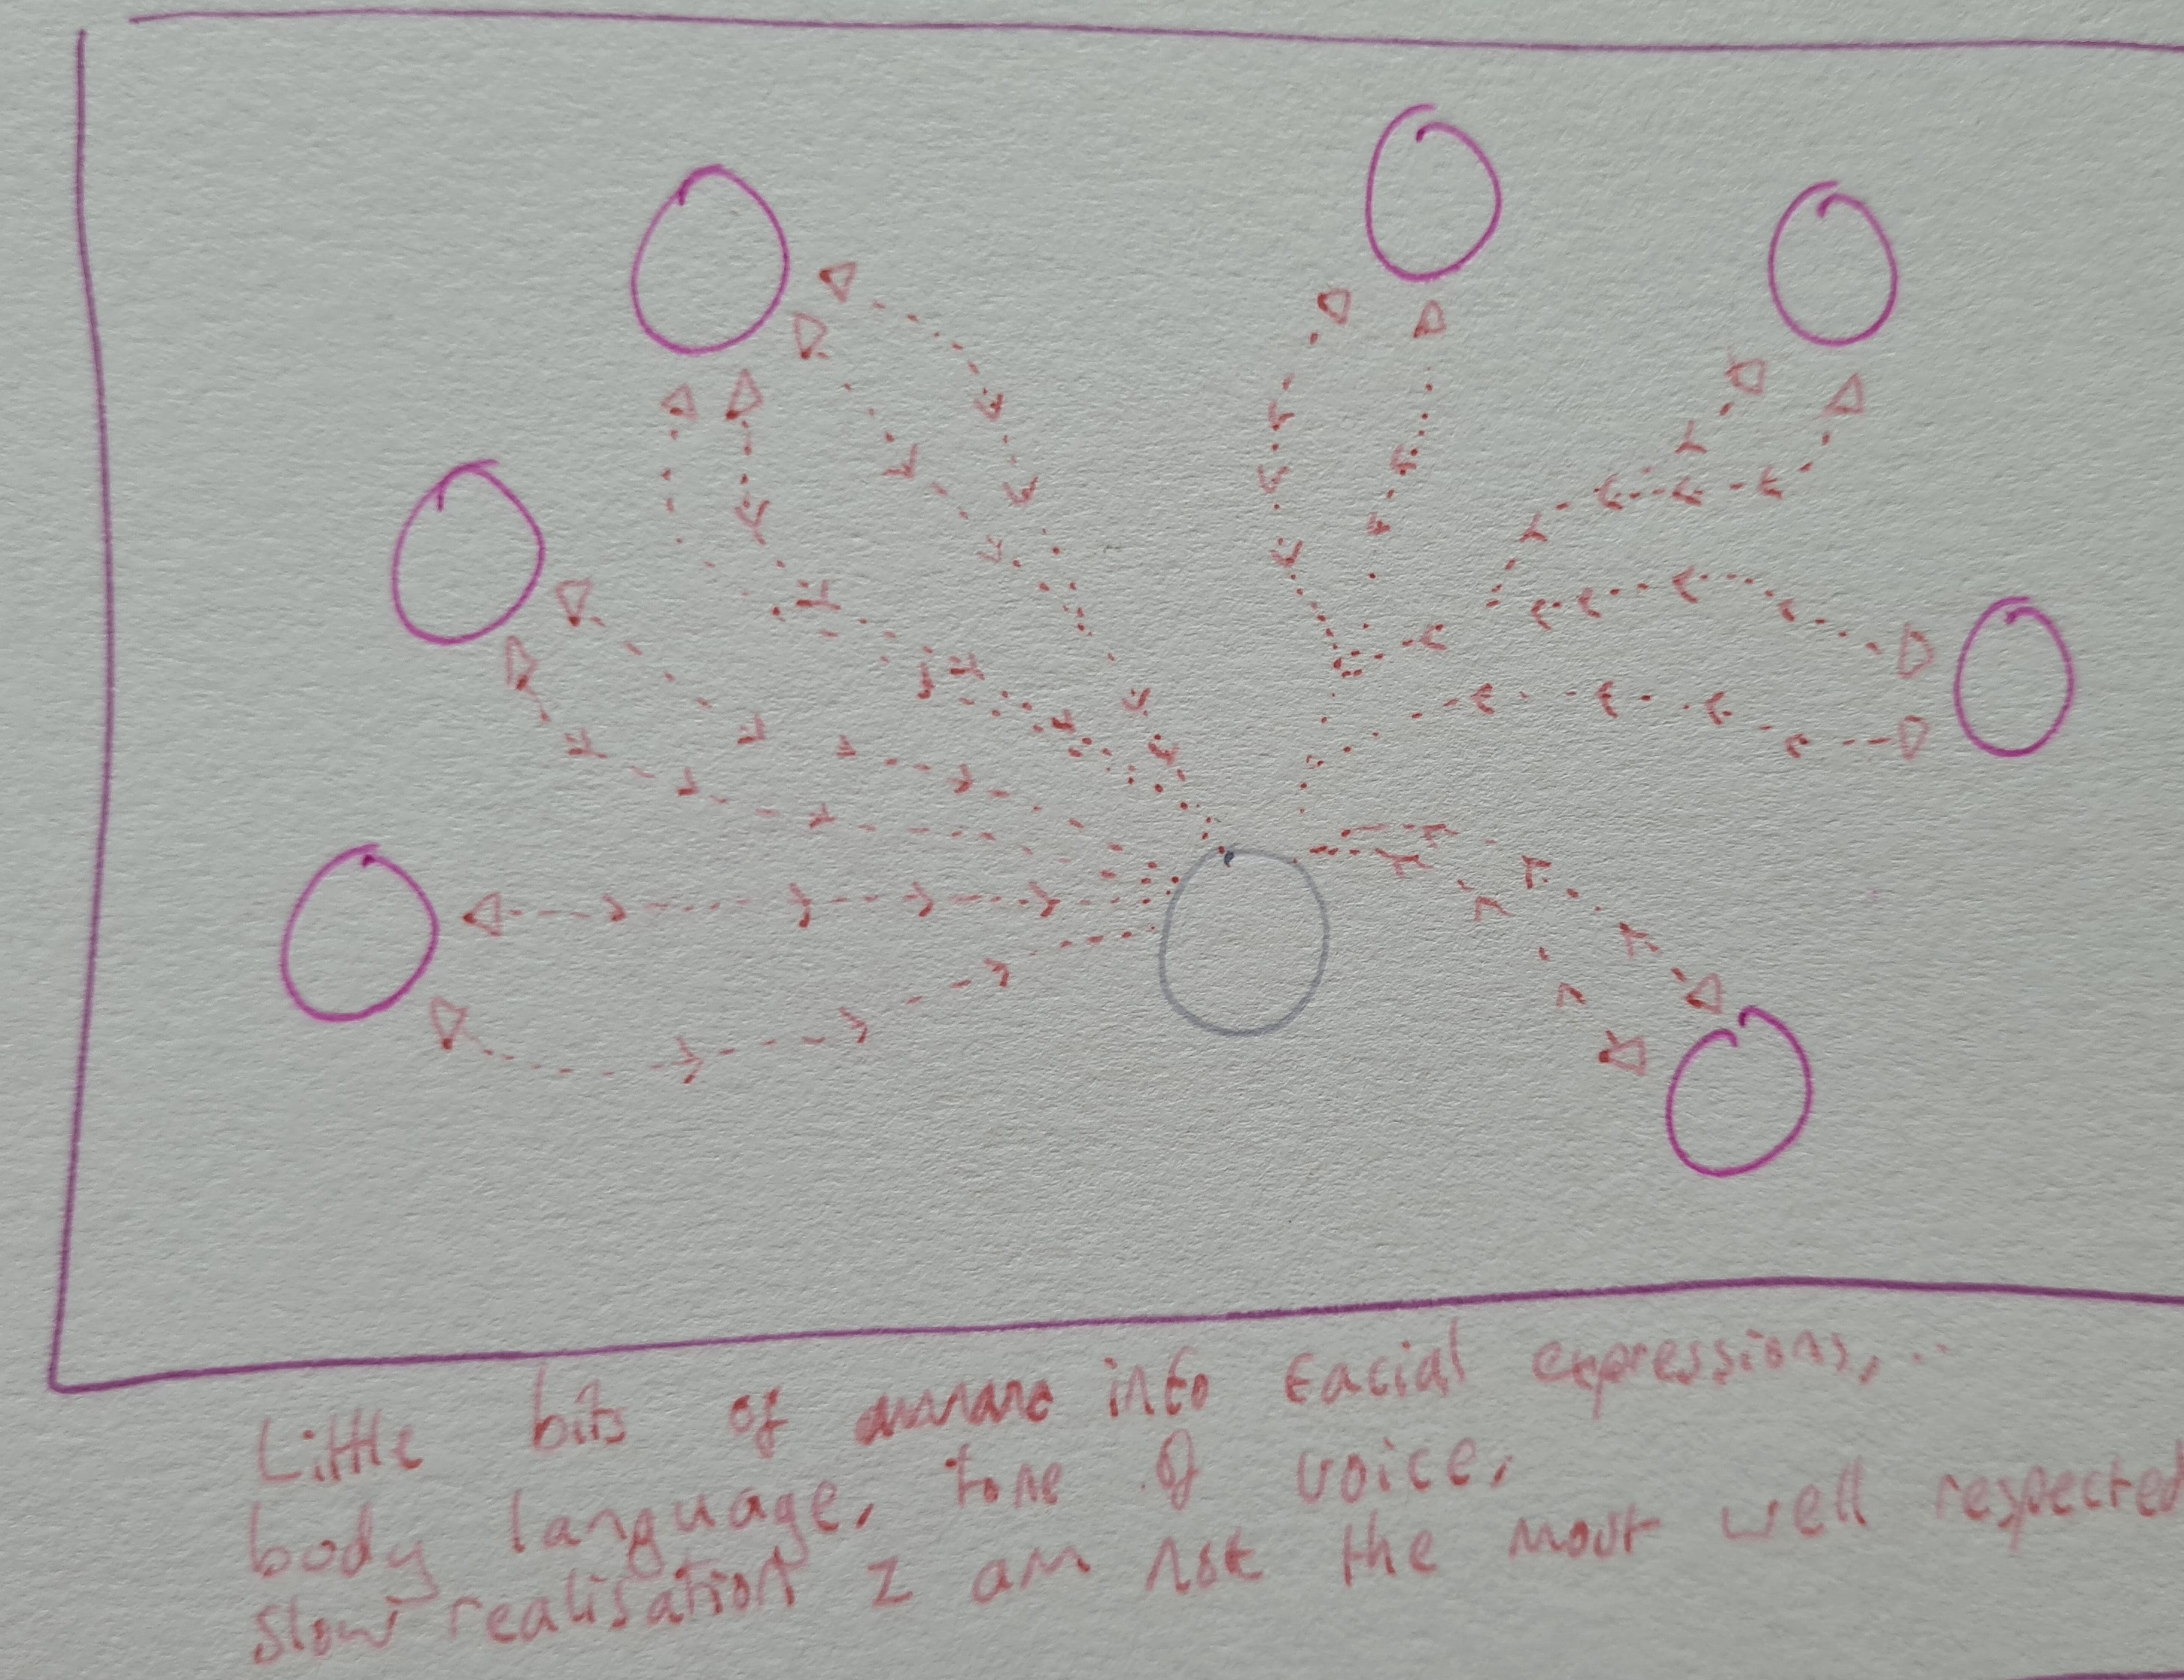 Little bits of into facial expressions,...
body language, tone of voice,
slow realisation I am not the most well respected